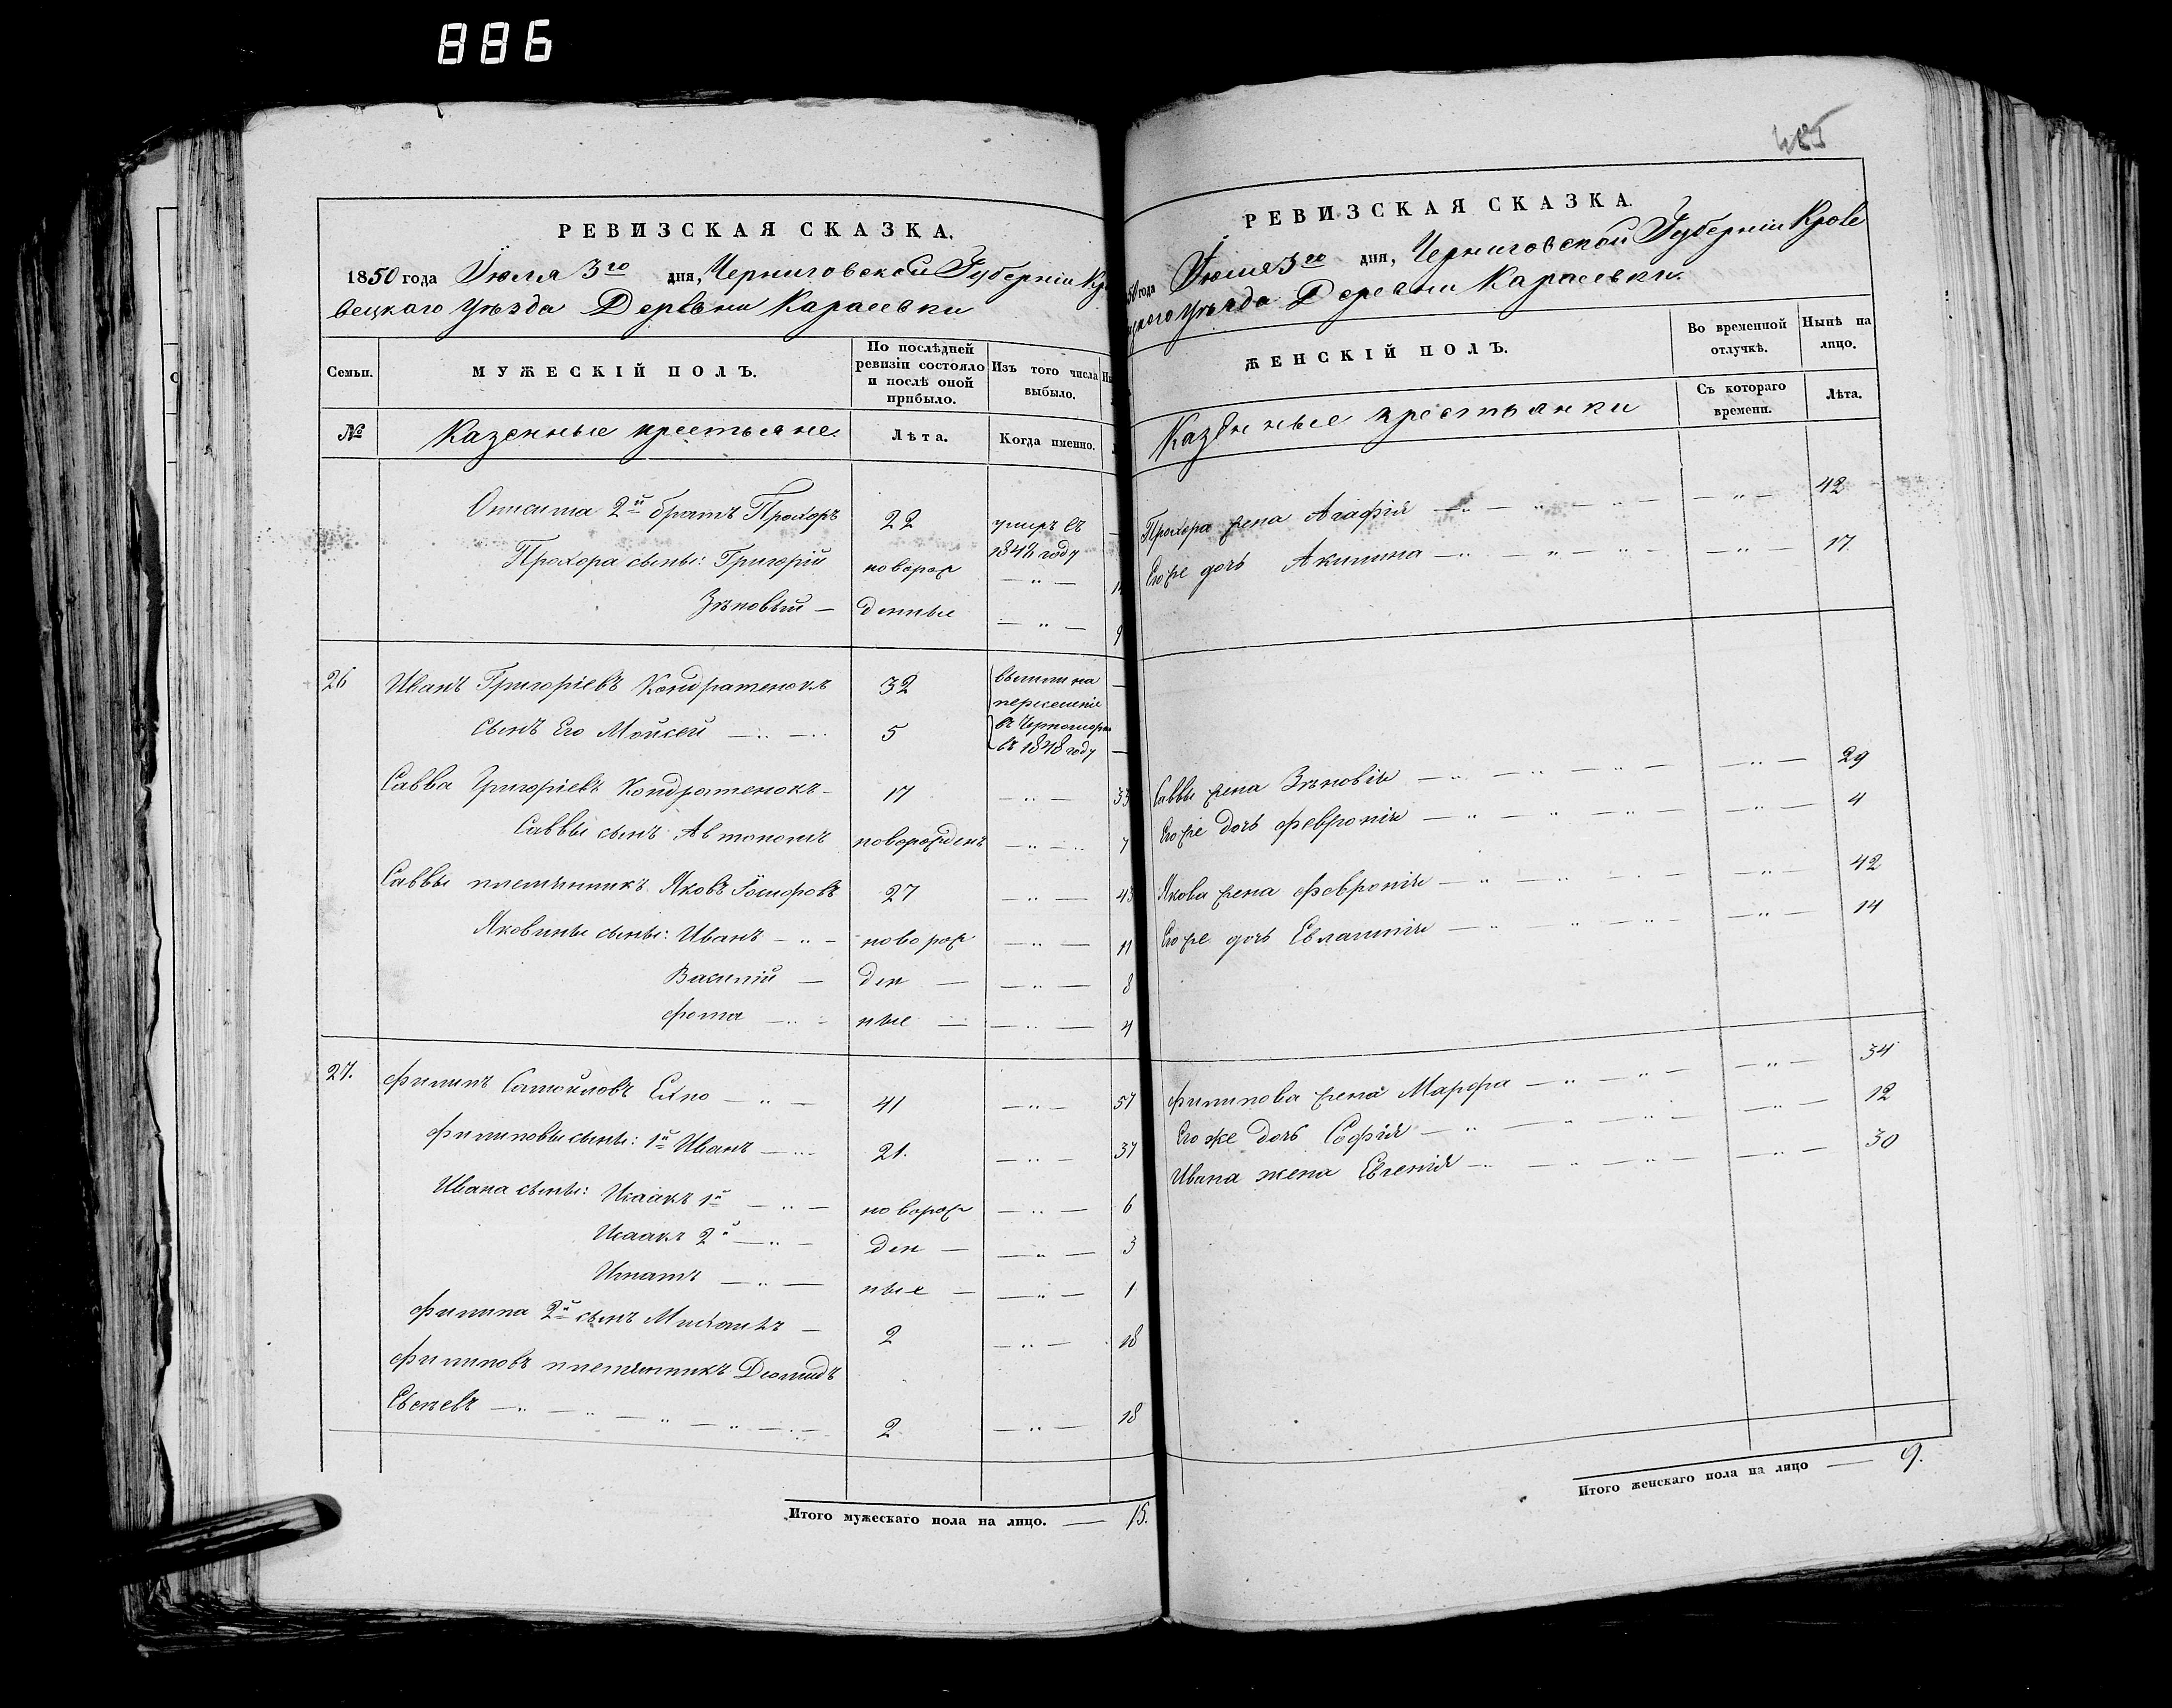 886
РЕВИЗСКАЯ СКАЗКА.
1850 года Іюля 3го дня, Черниговской Губерніи Кро
вецкаго Уѣзда Деревни Карасевки
Семьи.
МУЖЕСКІЙ ПОЛЪ.
По послѣдней ревизіи состояло и послѣ оной прибыло.
Изъ того числа выбыло.
№
Казенные крестьяне.
Лѣта.
Когда именно.
2й братъ Прохоръ 22 умеръ въ
184 году
Прохора сыны: Григорій новорож — " —
Зѣновій — денные — " — 9
26 Иванъ Григоріевъ Кондратенокъ 32 вышли на
переселеніе
сынъ Его Мойсей — " — 5 въ Черноморію
въ 1848 году
Савва Григоріевъ Кондратенокъ 17 — " — 33
Саввы сынъ Автономъ новорожденъ — " — 7
Саввы племянникъ Яковъ 27 — " — 43
Яковины сыны: Иванъ — " — новорож — " — 11
Василій — ден — — " — 8
Фома — " — ные — — " — 4
27. Филипъ Самойловъ Ехно — " — 41 — " — 57
Филиповы сыны: 1й Иванъ — " — 21. — " — 37
Ивана сыны: Исаакъ 1й — " — новорож — " — 6
Исаакъ 2й — " — ден — — " — 3
Игнатъ — " — ные — — " — 1
Филипа 2й сынъ Михаилъ — 2 — " — 18
Филиповъ племянникъ Діомидъ
Евсѣевъ — " — " — " — " — 2 — " — 18
Итого мужескаго пола на лицо. — 15.
485
РЕВИЗСКАЯ СКАЗКА.
50 года Іюля 3го дня, Черниговской Губерніи Крове
цкого Уѣзда Деревни Карасевки.
ЖЕНСКІЙ ПОЛЪ.
Во временной отлучкѣ.
Нынѣ на лицо.
Казенные крестьянки
Съ котораго времени.
Лѣта.
Прохора жена Агафія — " — " — " — — " — 42
Его же дочь Акилина — " — " — " — — " — 17
Саввы жена Зѣновія — " — " — " — — " — 29
Его же дочь Февронія — " — " — " — " — 4
Якова жена Февронія — " — " — " — 42
Его же дочь Евлампія — " — " — " — — " — 14
Филипова жена Марфа — " — " — — " — 34
Его же дочь Софія — " — " — " — — " — 12
Ивана жена Евгенія — " — " — " — — " — 30
Итого женскаго пола на лицо — 9.